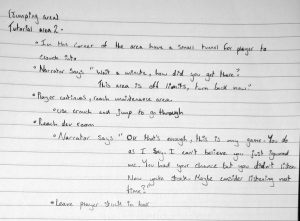 (Jumping area)
Tutorial area 2 -
• In this corner of the area have a small tunnel for player to
crouch into
• Narrator says "Wait a minute, how did you get there?
This area is off limits, turn back now."
• Player continues, reach maintenance area
• use crouch and jump to go through
• Reach dev room
• Narrator says "Ok that's enough, this is my game. You do
as I say. I can't believe you just ignored
me. You had your chance but you didn't listen
Now you're stuck. Maybe consider listening next
time?"
• Leave player stuck in box